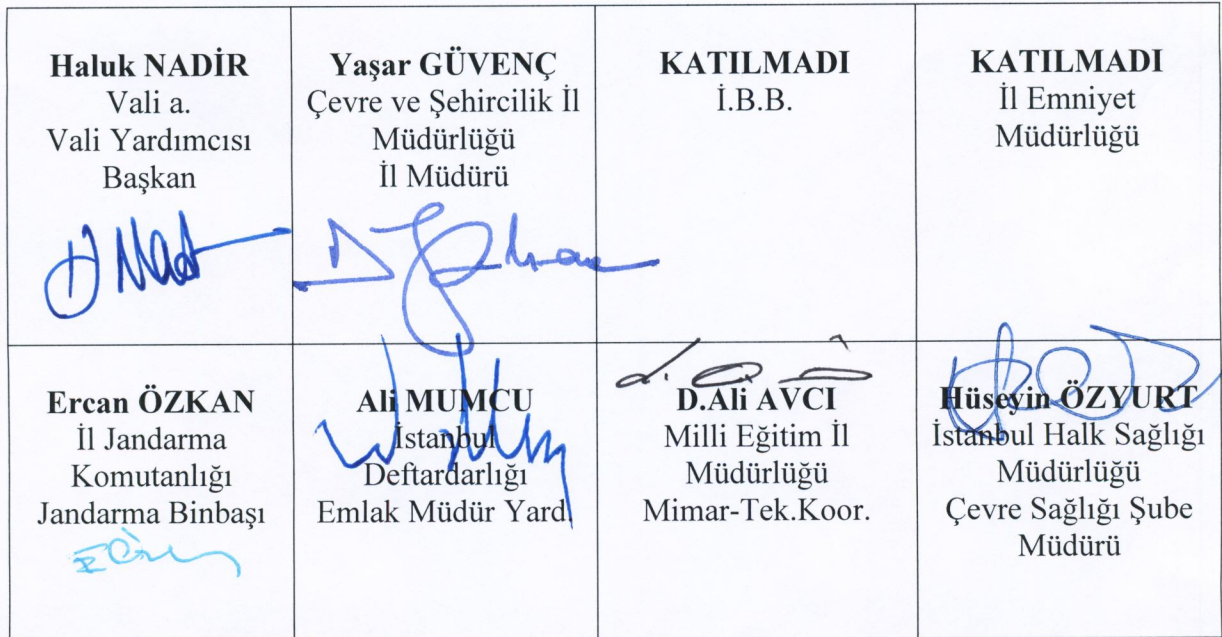 Haluk NADİR
Vali a.
Vali Yardımcısı
Başkan
Yaşar GÜVENÇ
Çevre ve Şehircilik İl
Müdürlüğü
İl Müdürü
KATILMADI
İ.B.B.
KATILMADI
İl Emniyet
Müdürlüğü
Ercan ÖZKAN
İl Jandarma
Komutanlığı
Jandarma Binbaşı
Ali MUMCU
İstanbul
Deftardarlığı
Emlak Müdür Yard.
D.Ali AVCI
Milli Eğitim İl
Müdürlüğü
Mimar-Tek.Koor.
Hüseyin ÖZYURT
İstanbul Halk Sağlığı
Müdürlüğü
Çevre Sağlığı Şube
Müdürü